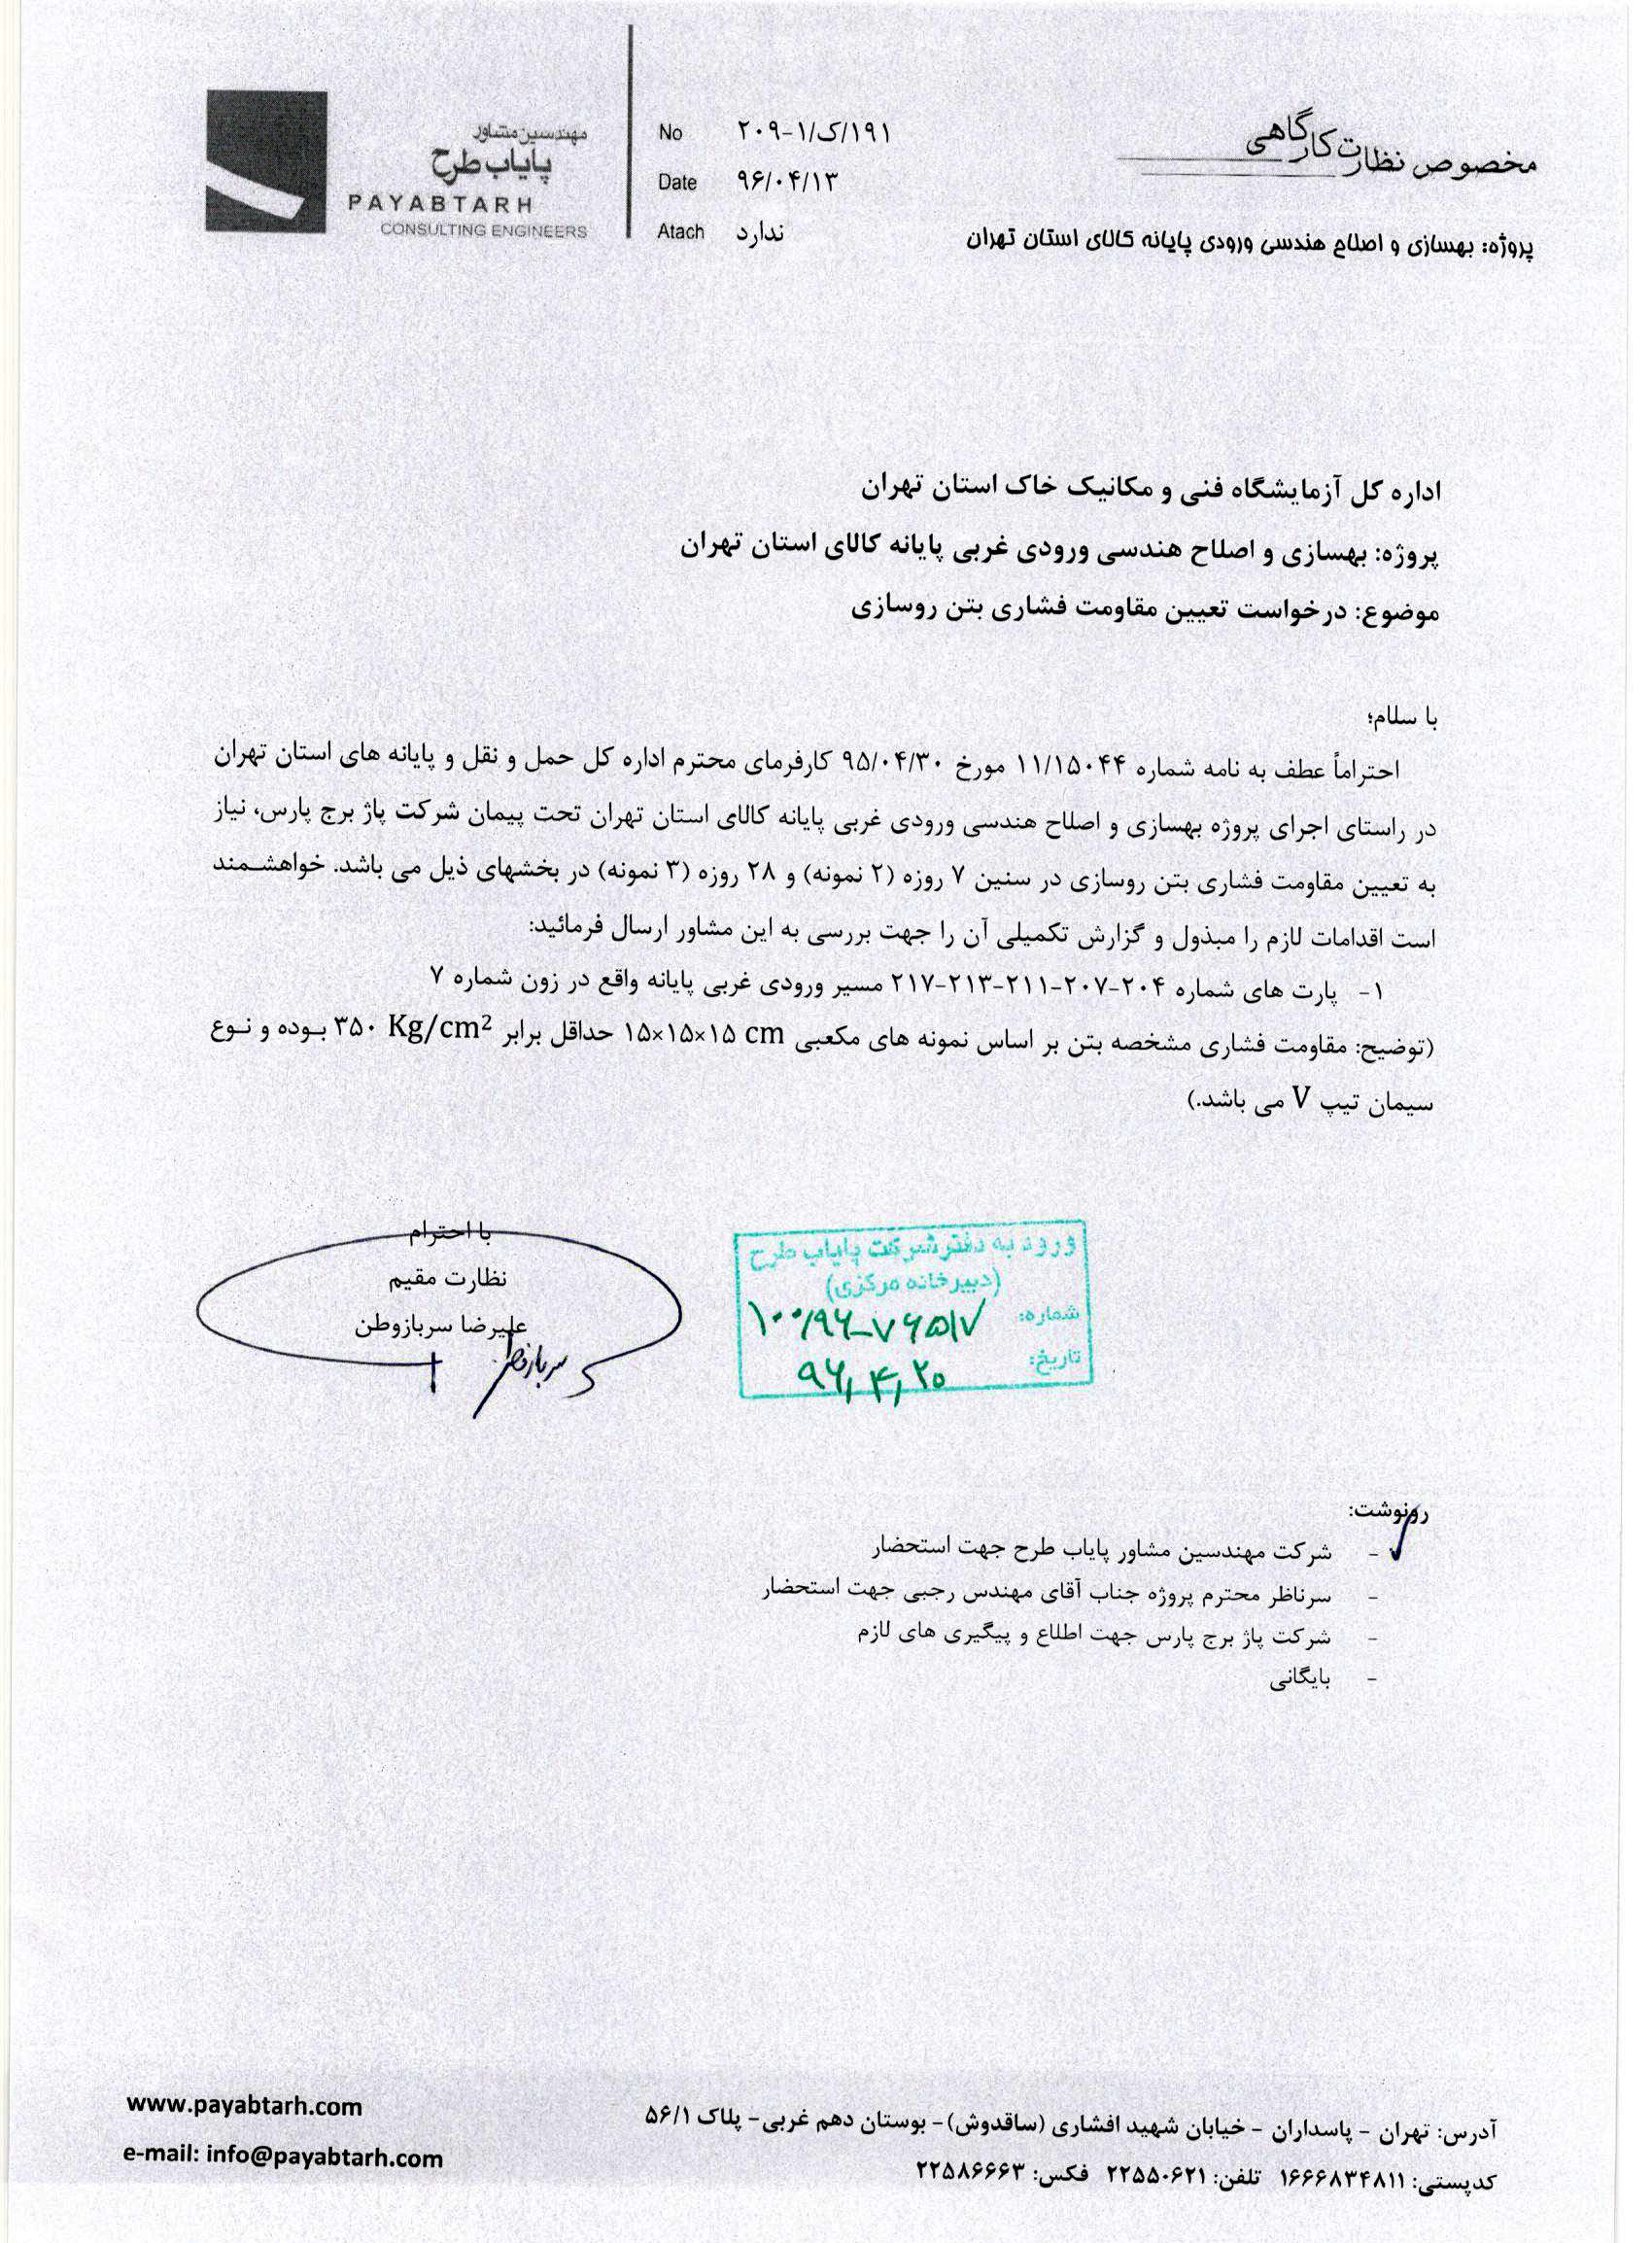 مهندسین مشاور
پایاب طرح
PAYABTARH
CONSULTING ENGINEERS
No ۲۰۹-۱/ک/۱۹۱
Date ۹۶/۰۴/۱۳
Atach ندارد
مخصوص نظارت کارگاهی
پروژه: بهسازی و اصلاح هندسی ورودی پایانه کالای استان تهران
اداره کل آزمایشگاه فنی و مکانیک خاک استان تهران
پروژه: بهسازی و اصلاح هندسی ورودی غربی پایانه کالای استان تهران
موضوع: درخواست تعیین مقاومت فشاری بتن روسازی
با سلام؛
احتراماً عطف به نامه شماره ۱۱/۱۵۰۴۴ مورخ ۹۵/۰۴/۳۰ کارفرمای محترم اداره کل حمل و نقل و پایانه های استان تهران
در راستای اجرای پروژه بهسازی و اصلاح هندسی ورودی غربی پایانه کالای استان تهران تحت پیمان شرکت پاژ برج پارس، نیاز
به تعیین مقاومت فشاری بتن روسازی در سنین ۷ روزه (۲ نمونه) و ۲۸ روزه (۳ نمونه) در بخشهای ذیل می باشد. خواهشمند
است اقدامات لازم را مبذول و گزارش تکمیلی آن را جهت بررسی به این مشاور ارسال فرمائید:
۱- پارت های شماره ۲۰۴-۲۰۷-۲۱۱-۲۱۳-۲۱۷ مسیر ورودی غربی پایانه واقع در زون شماره ۷
(توضیح: مقاومت فشاری مشخصه بتن بر اساس نمونه های مکعبی ۱۵×۱۵×۱۵ cm حداقل برابر ۳۵۰ Kg/cm² بوده و نوع
سیمان تیپ V می باشد.)
با احترام
نظارت مقیم
علیرضا سربازوطن
ورود به دفتر شرکت پایاب طرح
(دبیرخانه مرکزی)
شماره: ۱۰۰/۹۶-۷۶۵۱۷
تاریخ: ۹۶,۴,۲۰
رونوشت:
- شرکت مهندسین مشاور پایاب طرح جهت استحضار
- سرناظر محترم پروژه جناب آقای مهندس رجبی جهت استحضار
- شرکت پاژ برج پارس جهت اطلاع و پیگیری های لازم
- بایگانی
آدرس: تهران - پاسداران - خیابان شهید افشاری (ساقدوش)- بوستان دهم غربی- پلاک ۵۶/۱
کدپستی: ۱۶۶۶۸۳۴۸۱۱ تلفن: ۲۲۵۵۰۶۲۱ فکس: ۲۲۵۸۶۶۶۳
www.payabtarh.com
e-mail: info@payabtarh.com